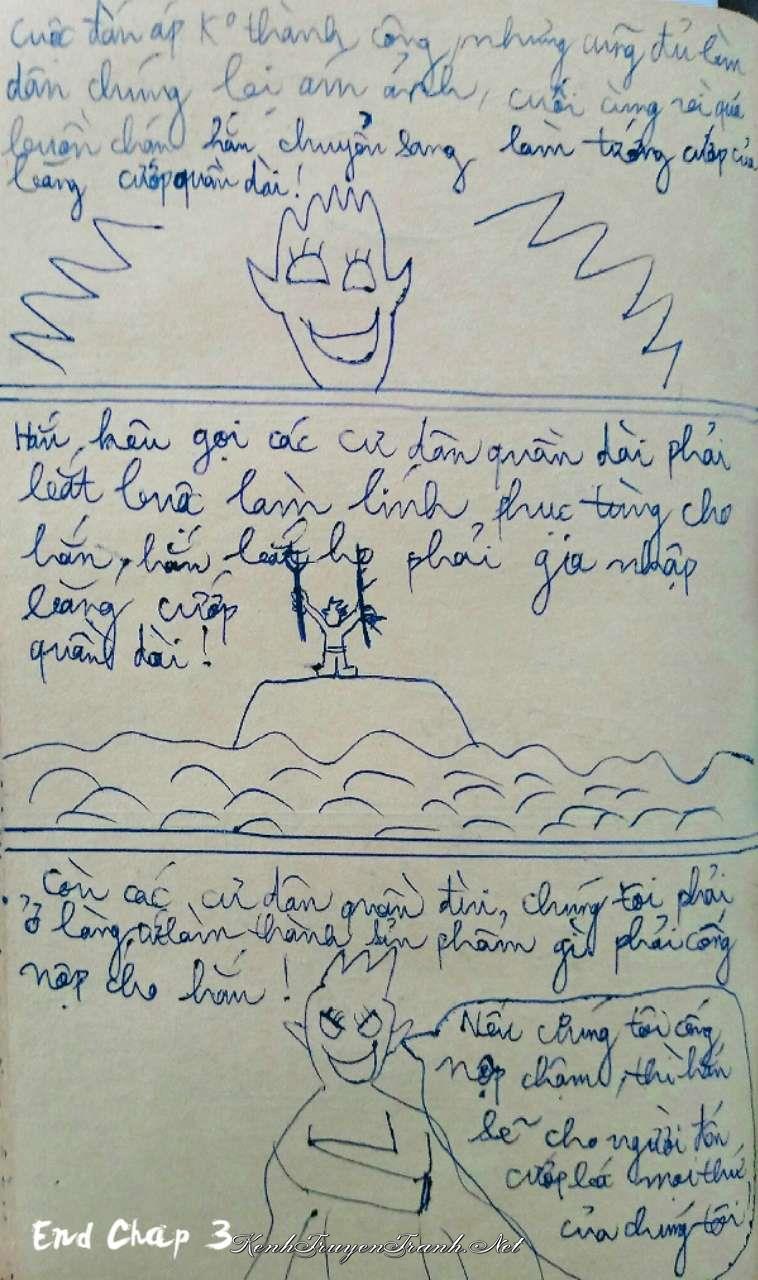 Cuộc đàn áp K° thành công, nhưng cũng đủ làm
dân chúng bị ám ảnh, cuối cùng rồi quá
buồn chán hắn chuyển sang làm tướng cướp của
băng cướp quần dài!
Hắn, kêu gọi các cư dân quần dài phải
bắt buộc làm lính phục tùng cho
hắn, hắn bắt họ phải gia nhập
băng cướp
quần dài!
Còn các cư dân quần đùi, chúng tôi phải
ở làng, làm thành sản phẩm gì phải cống
nộp cho hắn!
Nếu chúng tôi cống
nộp chậm, thì hắn
sẽ cho người đến
cướp mọi thứ
của chúng tôi
End Chap 3
KenhTruyenTranh.Net